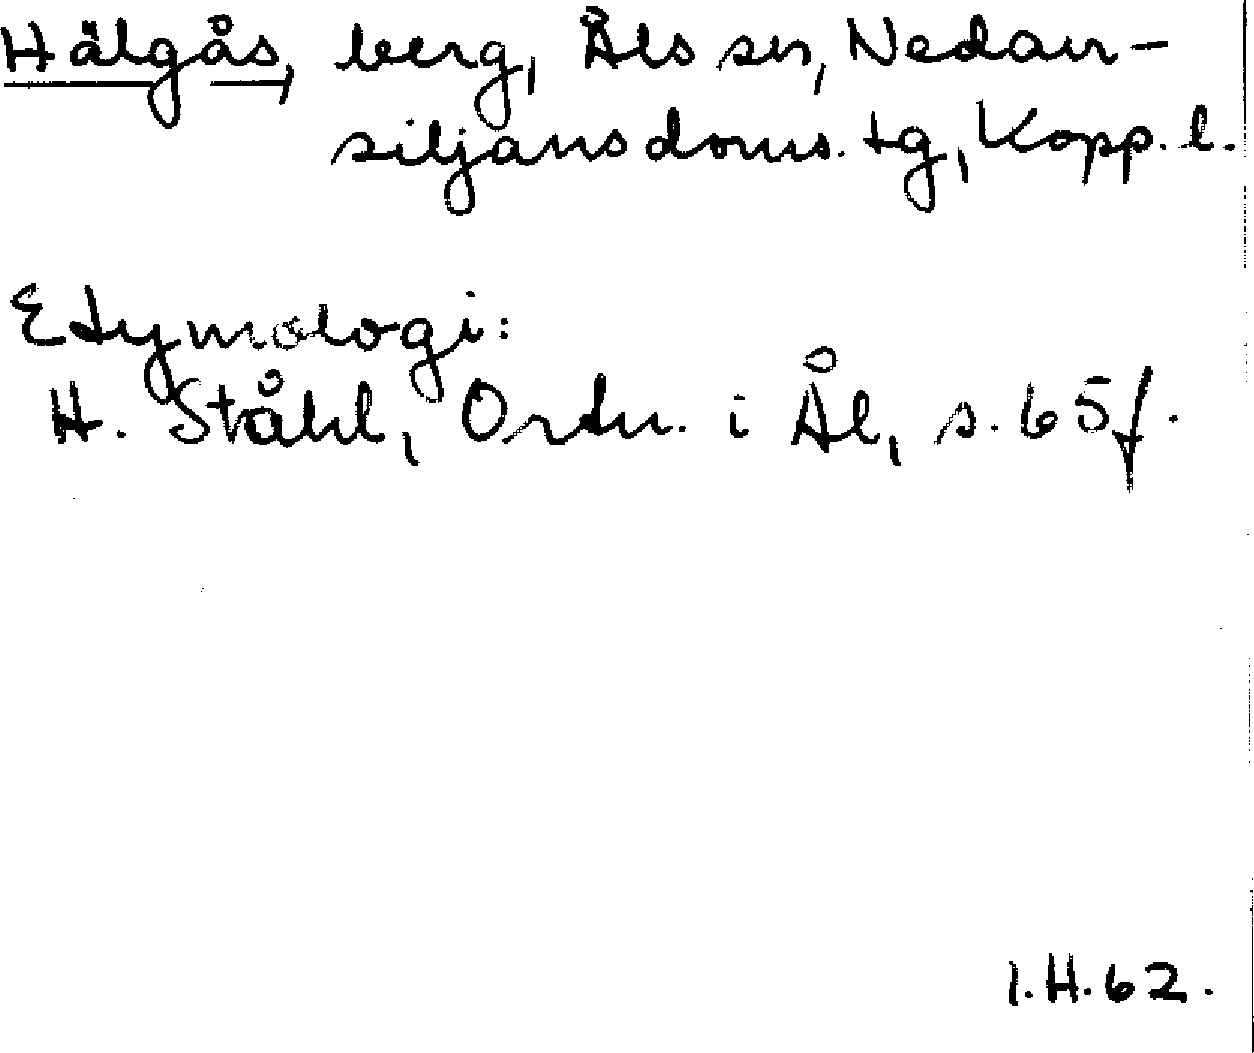 Hälgås, berg, Åls sn, Nedan-
siljans doms. tg, Kopp. l.
Etymologi:
H. Ståhl, Ortn. i Ål, s. 65 f.
I.H. 62.